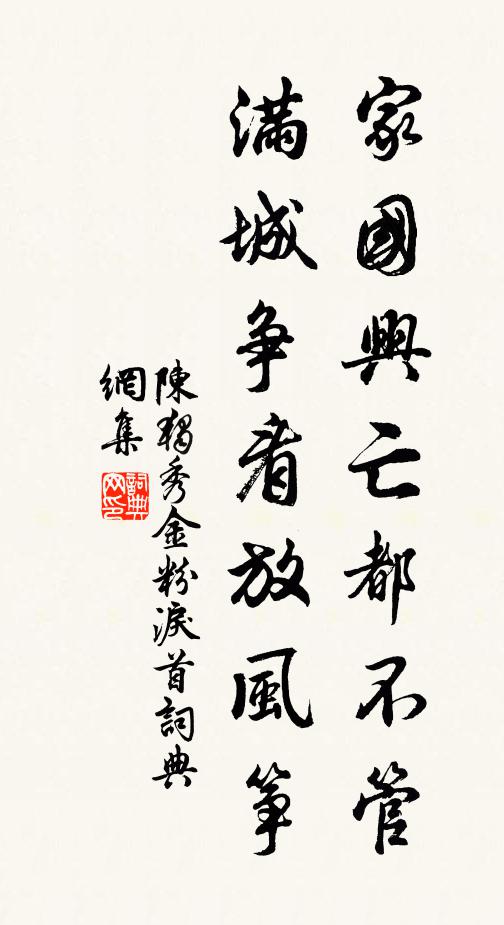 家國興亡都不管
滿城争看放風箏
陳獨秀金粉淚首詞典
網集
詞典網印